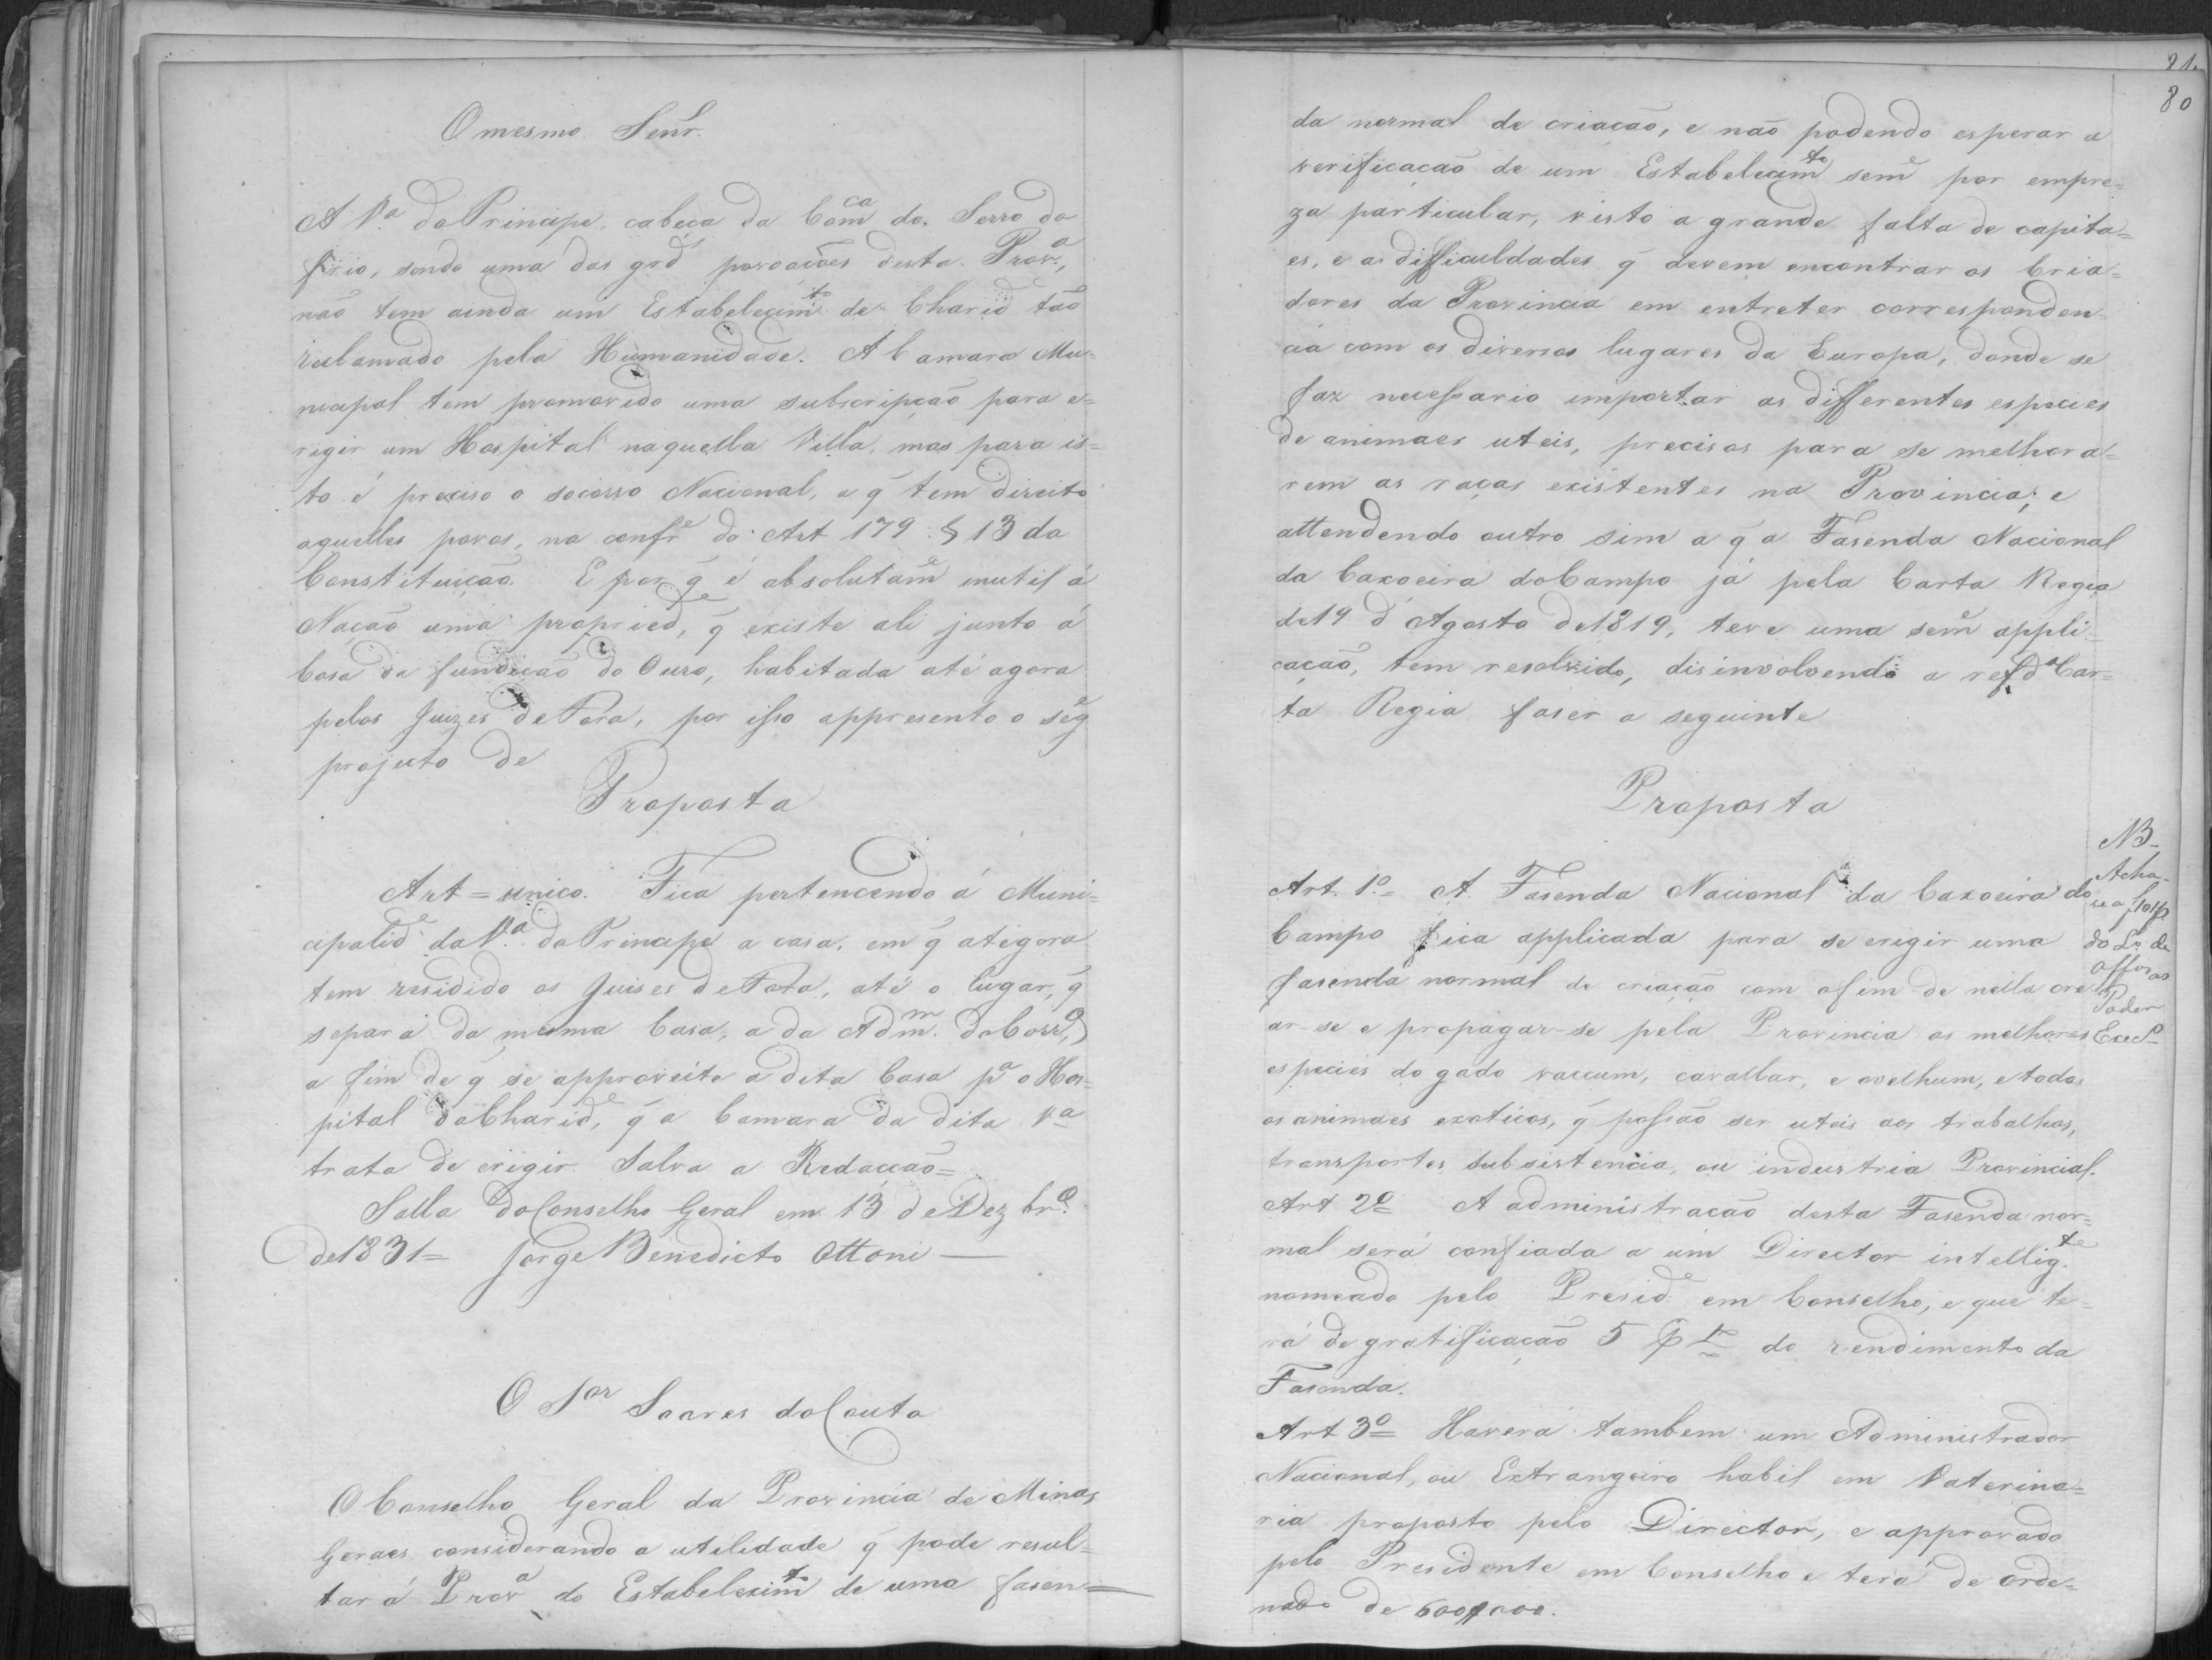 O mesmo Senr.
A Va. do Principe, cabeça da Comca do Serro do
frio, sendo uma das grdes povoações desta Prova.,
não tem ainda um Estabelecimto de Charide tão
reclamado pela Humanidade. A Camara Mu=
nicipal tem promovido uma subscripção para e=
rigir um Hospital naquella Villa, mas para is=
to é preciso o socorro Nacional, a q̃ tem direito
aquelles povos, na confre do Art 179 § 13 da
Constituição. E por q̃ é absolutame inutil á
Nação uma propriede, q̃ existe ali junto á
Casa da fundição do Ouro, habitada até agora
pelos Juizes de Fora, por isso appresento o sege
projecto de
Proposta
Art = unico. Fica pertencendo á Muni=
cipalide da Va. do Principe a casa, em q̃ atégora
tem residido os Juises de Fora, até o lugar, q̃
separa da mesma Casa, a da Admm. do Corro,
a fim de q̃ se approveite a dita Casa pa o Hos=
pital da Charide, q̃ a Camara da dita Va
trata de erigir. Salva a Redacção=
Salla do Conselho Geral em 13 de Dezbro.
de 1831= Jorge Benedicto Ottoni —
O Sor Soares do Couto
O Conselho Geral da Provincia de Minas
Geraes considerando a utilidade q̃ pode resul=
tar á Prova do Estabelecimto de uma fasen=
21.
80
da normal de criação, e não podendo esperar a
verificação de um Estabelecimto seme por empre=
za particular, visto a grande falta de capita=
es, e as difficuldades q̃ devem encontrar os Cria=
dores da Provincia em entreter corresponden=
cia com os diversos lugares da Europa, donde se
faz necessario importar as differentes especies
de animaes uteis, precisos para se melhora=
rem as raças existentes na Provincia; e
attendendo outro sim a q̃ a Fasenda Nacional
da Caxoeira do Campo já pela Carta Regia
de 19 d'Agosto de 1819, teve uma seme appli=
cação, tem resolvido, disinvolvendo a refda Car=
ta Regia faser a seguinte
Proposta
Art. 1º= A Fasenda Nacional da Caxoeira do
Campo fica applicada para se erigir uma
fasenda normal de criação com o fim de nella cre
ar-se e propagar-se pela Provincia as melhores
especies do gado vaccum, cavallar, e ovelhum, e todos
os animaes exoticos, q̃ possão ser uteis aos trabalhos,
transportes, subsistencia, ou industria Provincial.
Art 2º A administração desta Fasenda nor=
mal será confiada a um Director intelligte.
nomeado pelo Preside em Conselho, e que te=
rá de gratificação 5 p. do rendimento da
Fasenda.
Art 3º Haverá tambem um Administrador
Nacional, ou Extrangeiro habil em Vaterina=
ria proposto pelo Director, e approvado
pelo Presidente em Conselho e terá de orde=
nado de 600$000.
NB_
Acha-
se a f
do Lo de
Offos ao
Poder
Execo